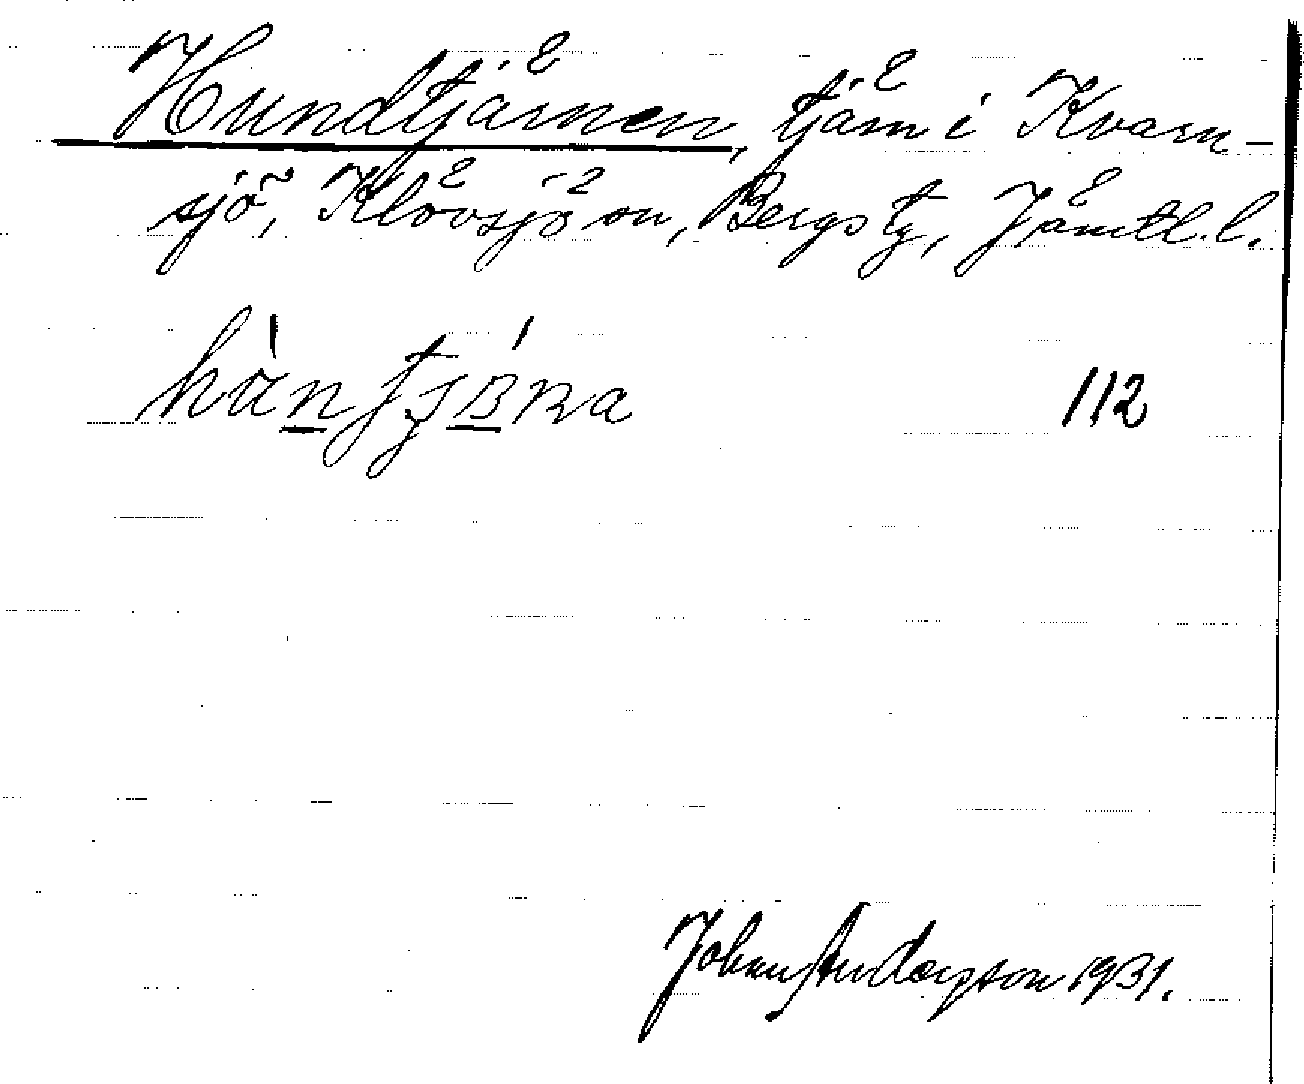 Hundtjärnen, tjärn i Kvarn-
sjö, Klövsjö sn, Bergs tg, Jämtl. l.
112
Johan Anderzson 1931.